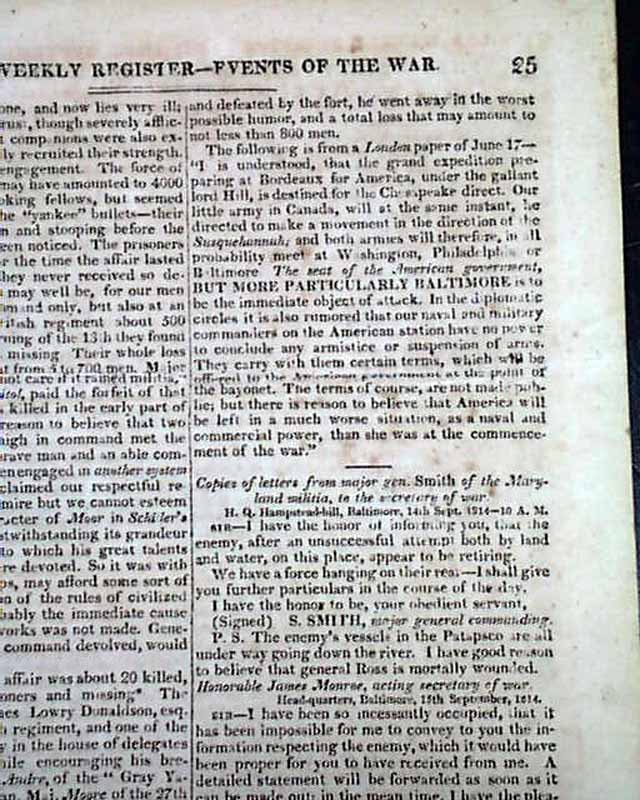 WEEKLY REGISTER—EVENTS OF THE WAR. 25
one, and now lies very ill;
though severely afflic-
companions were also ex-
ly recruited their strength.
engagement. The force of
may have amounted to 4000
oking fellows, but seemed
he "yankee" bullets—their
m and stooping before the
een noticed. The prisoners
r the time the affair lasted
hey never received so de-
may well be, for our men
mand only, but also at an
itish regiment about 500
ning of the 13th they found
missing. Their whole loss
at from 5 to 700 men. Major
not care if it rained militia,"
itol, paid the forfeit of that
killed in the early part of
reason to believe that two
high in command met the
rave man and an able com-
en engaged in another system
claimed our respectful re-
mire but we cannot esteem
racter of Moor in Schiller's
twithstanding its grandeur
to which his great talents
re devoted. So it was with
ps, may afford some sort of
on of the rules of civilized
bably the immediate cause
works was not made. Gene-
command devolved, would
affair was about 20 killed,
oners and missing* The
es Lowry Donaldson, esq.
regiment, and one of the
y in the house of delegates
ile encouraging his bre-
Andre, of the "Gray Ya-
an. M. j. Moore of the 27th
and defeated by the fort, he went away in the worst
possible humor, and a total loss that may amount to
not less than 800 men.
The following is from a London paper of June 17—
"I is understood, that the grand expedition pre-
paring at Bordeaux for America, under the gallant
lord Hill, is destined for the Chesapeake direct. Our
little army in Canada, will at the same instant, be
directed to make a movement in the direction of the
Susquehannah; and both armies will therefore, in all
probability meet at Washington, Philadelphia or
Baltimore The seat of the American government,
BUT MORE PARTICULARLY BALTIMORE is to
be the immediate object of attack. In the diplomatic
circles it is also rumored that our naval and military
commanders on the American station have no power
to conclude any armistice or suspension of arms.
They carry with them certain terms, which will be
offered to the American government at the point of
the bayonet. The terms of course, are not made pub-
lic; but there is reason to believe that America will
be left in a much worse situation, as a naval and
commercial power, than she was at the commence-
ment of the war."
Copies of letters from major gen. Smith of the Mary-
land militia, to the secretary of war.
H. Q. Hampstead-hill, Baltimore, 14th Sept. 1814—10 A. M.
SIR—I have the honor of informing you, that the
enemy, after an unsuccessful attempt both by land
and water, on this place, appear to be retiring.
We have a force hanging on their rear—I shall give
you further particulars in the course of the day.
I have the honor to be, your obedient servant,
(Signed) S. SMITH, major general commanding.
P. S. The enemy's vessels in the Patapsco are all
under way going down the river. I have good reason
to believe that general Ross is mortally wounded.
Honorable James Monroe, acting secretary of war.
Head-quarters, Baltimore, 15th September, 1814.
SIR—I have been so incessantly occupied, that it
has been impossible for me to convey to you the in-
formation respecting the enemy, which it would have
been proper for you to have received from me. A
detailed statement will be forwarded as soon as it
can be made out; in the mean time, I have the plea-